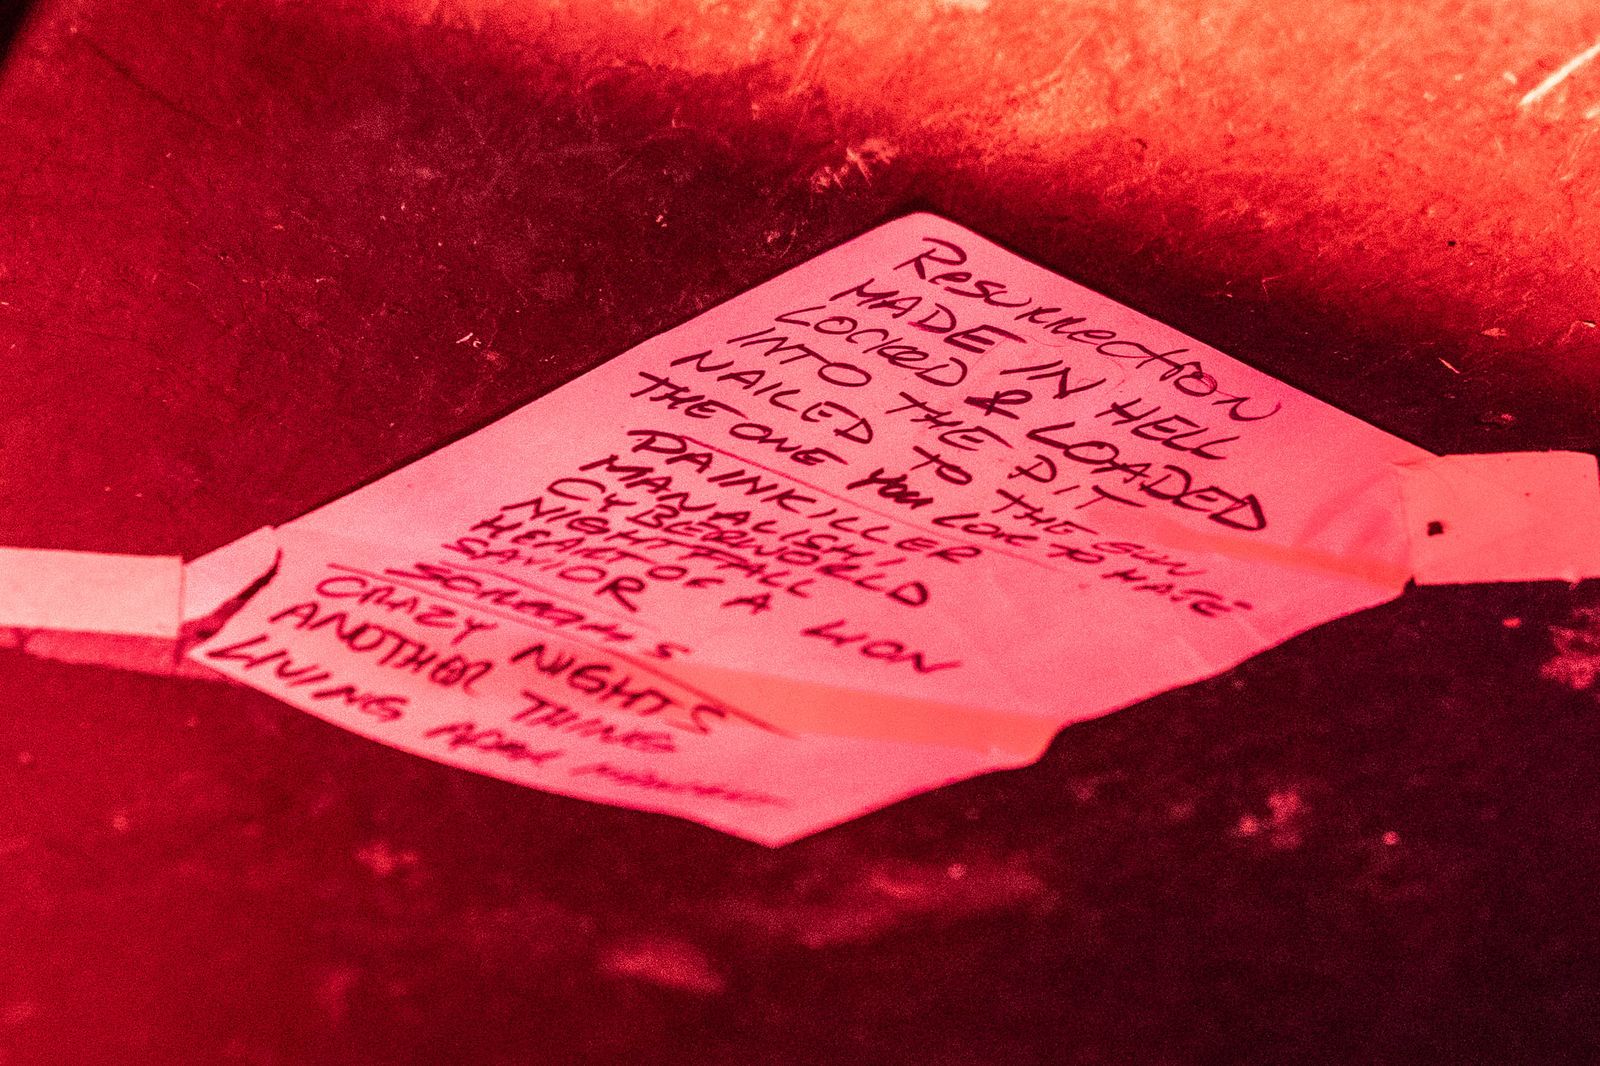 Resurrection
MADE IN HELL
LOCKED & LOADED
INTO THE PIT
NAILED TO THE GUN
THE ONE YOU LOVE TO HATE
PAINKILLER
MANALISHI
CYBERWORLD
NIGHTFALL
HEART OF A LION
SAVIOR
SCREAMS
CRAZY NIGHTS
ANOTHER THING
LIVING AFTER MIDNIGHT